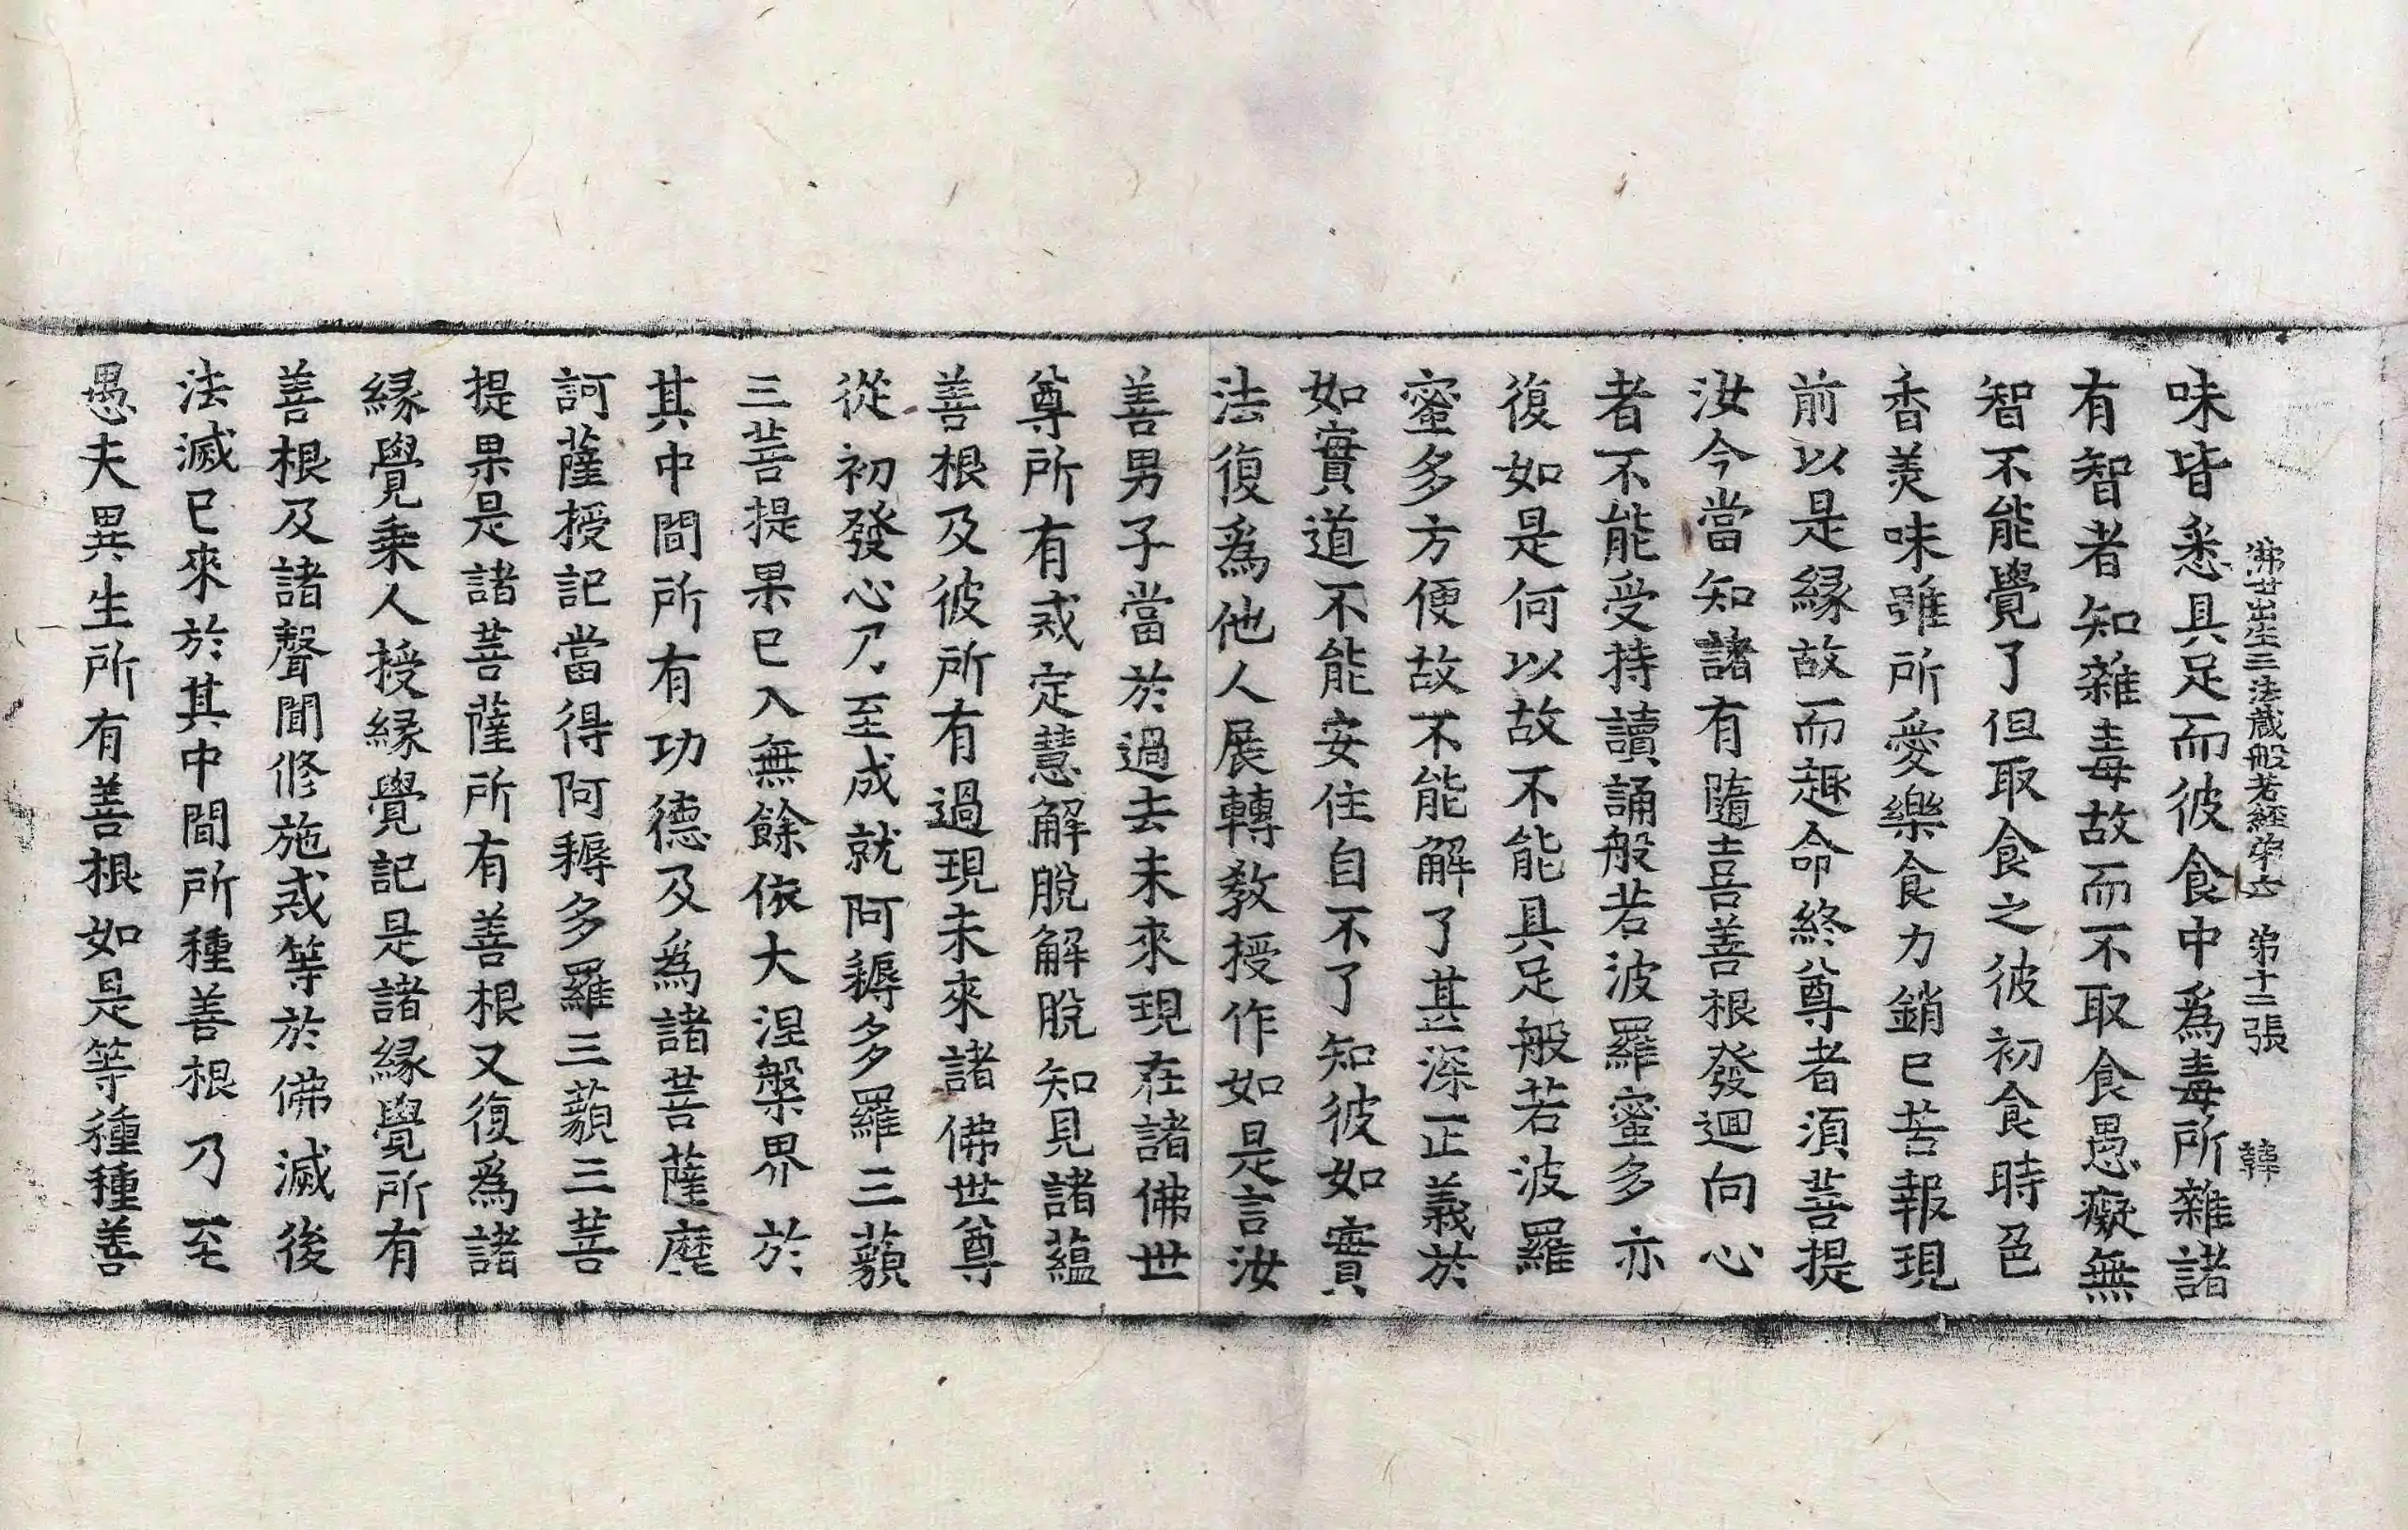 佛母出生三法藏般若經第六　第十二張　韓
味皆悉具足而彼食中爲毒所雜諸
有智者知雜毒故而不取食愚癡無
智不能覺了但取食之彼初食時色
香美味雖所愛樂食力銷已苦報現
前以是緣故而趣命終尊者須菩提
汝今當知諸有隨喜善根發迴向心
者不能受持讀誦般若波羅蜜多亦
復如是何以故不能具足般若波羅
蜜多方便故不能解了甚深正義於
如實道不能安住自不了知彼如實
法復爲他人展轉教授作如是言汝
善男子當於過去未來現在諸佛世
尊所有戒定慧解脫解脫知見諸蘊
善根及彼所有過現未來諸佛世尊
從初發心乃至成就阿耨多羅三藐
三菩提果已入無餘依大涅槃界於
其中間所有功德及爲諸菩薩摩
訶薩授記當得阿耨多羅三藐三菩
提果是諸菩薩所有善根又復爲諸
緣覺乘人授緣覺記是諸緣覺所有
善根及諸聲聞修施戒等於佛滅後
法滅已來於其中間所種善根乃至
愚夫異生所有善根如是等種種善